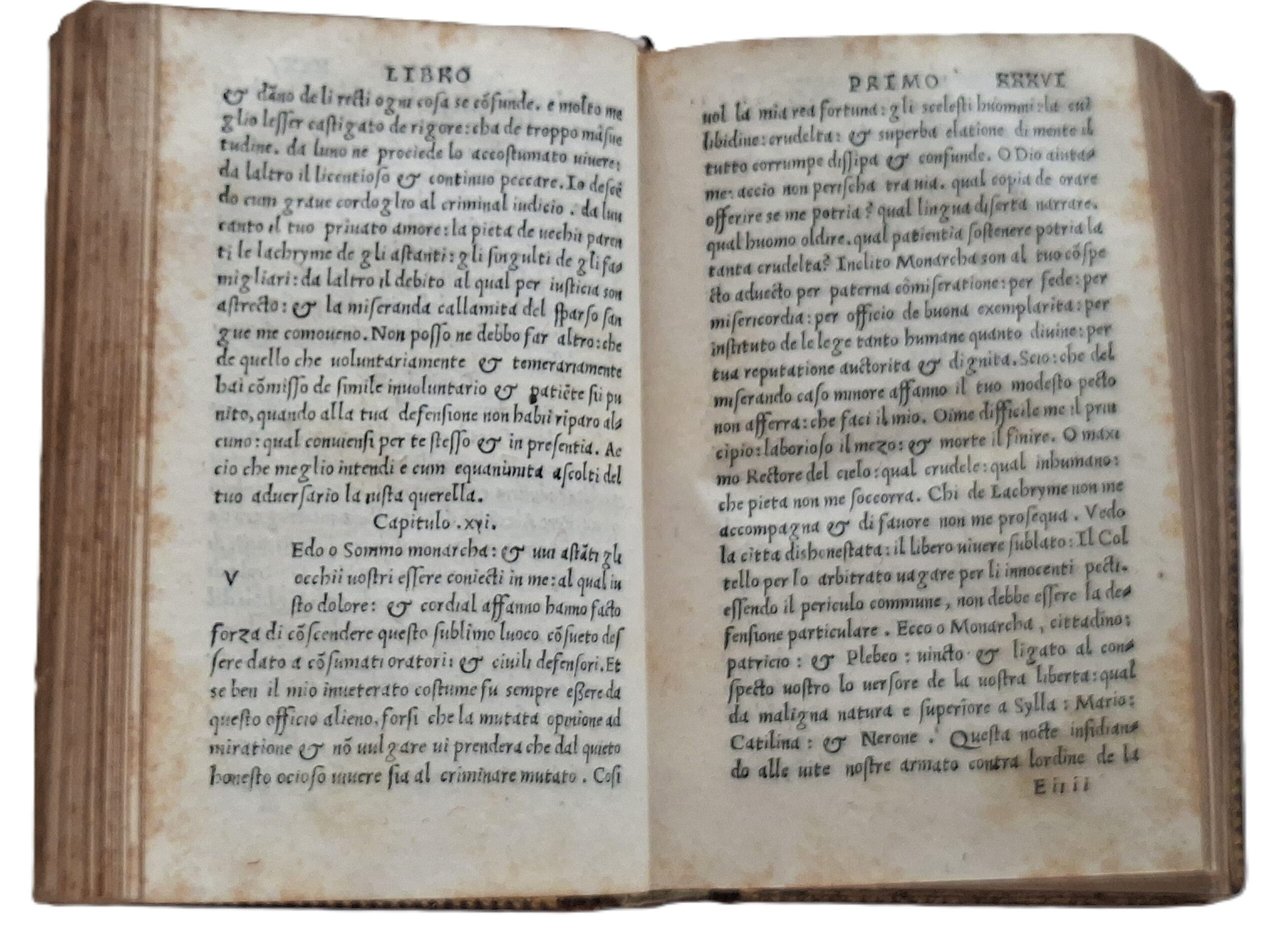 LIBRO
& dãno de li recti ogni cosa se cõfunde. e molto me
glio lesser castigato de rigore: cha de troppo mãsue
tudine. da luno ne prociede lo accostumato uiuere:
da laltro il licentioso & continuo peccare. Io descẽ
do cum graue cordoglio al criminal iudicio. da luu
canto il tuo priuato amore: la pieta de uechii paren
ti le lachryme de gli astanti: gli singulti de gli fa⸗
migliari: da laltro il debito al qual per iusticia son
astrecto: & la miseranda callamita del sparso san
gue me comoueno. Non posso ne debbo far altro: che
de quello che uoluntariamente & temerariamente
hai cõmisso de simile inuoluntario & patiẽte sii pu
nito, quando alla tua defensione non habii riparo al⸗
cuno: qual conuiensi per te stesso & in presentia. Ac
cio che meglio intendi e cum equanimita ascolti del
tuo aduersario la iusta querella.
Capitulo .xvi.
V Edo o Sommo monarcha: & uui astãti gli
occhii uostri essere coniecti in me: al qual iu
sto dolore: & cordial affanno hanno facto
forza di cõscendere questo sublimo luoco cõsueto des
sere dato a cõsumati oratorii & ciuili defensori. Et
se ben il mio inueterato costume fu sempre essere da
questo officio alieno, forsi che la mutata openione ad
miratione & nõ uulgare ui prendera che dal quieto
honesto ocioso uiuere sia al criminare mutato. Cosi
PRIMO XXXVI
uol la mia rea fortuna: gli scelesti huomni: la cui
libidine: crudelta: & superba elatione di mente il
tutto corrumpe dissipa & confunde. O Dio aiuta⸗
me: accio non perischa tra uia. qual copia de orare
offerire se me potria? qual lingua diserta narrare.
qual huomo oldire. qual patientia sostenere potria la
tanta crudelta? Inclito Monarcha son al tuo cõspe
cto aduecto per paterna cõmiseratione: per fede: per
misericordia: per officio de buona exemplarita: per
instituto de le lege tanto humane quanto diuine: per
tua reputatione auctorita & dignita. Scio: che del
miserando caso minore affanno il tuo modesto pecto
non afferra: che faci il mio. Oime difficile me il prin
cipio: laborioso il mezo: & morte il finire. O maxi
mo Rectore del cielo: qual crudele: qual inhumano:
che pieta non me soccorra. Chi de Lachryme non me
accompagna & di fauore non me prosequa. Vedo
la citta dishonestata: il libero uiuere sublato: Il Col
tello per lo arbitrato uagare per li innocenti pecti.
essendo il periculo commune, non debbe essere la de⸗
fensione particulare. Ecco o Monarcha, cittadino:
patricio: & Plebeo: uincto & ligato al con⸗
specto uostro lo uersore de la uostra liberta: qual
da maligna natura e superiore a Sylla: Mario:
Catilina: & Nerone. Questa nocte insidian⸗
do alle uite nostre armato contra lordine de la
E iiii